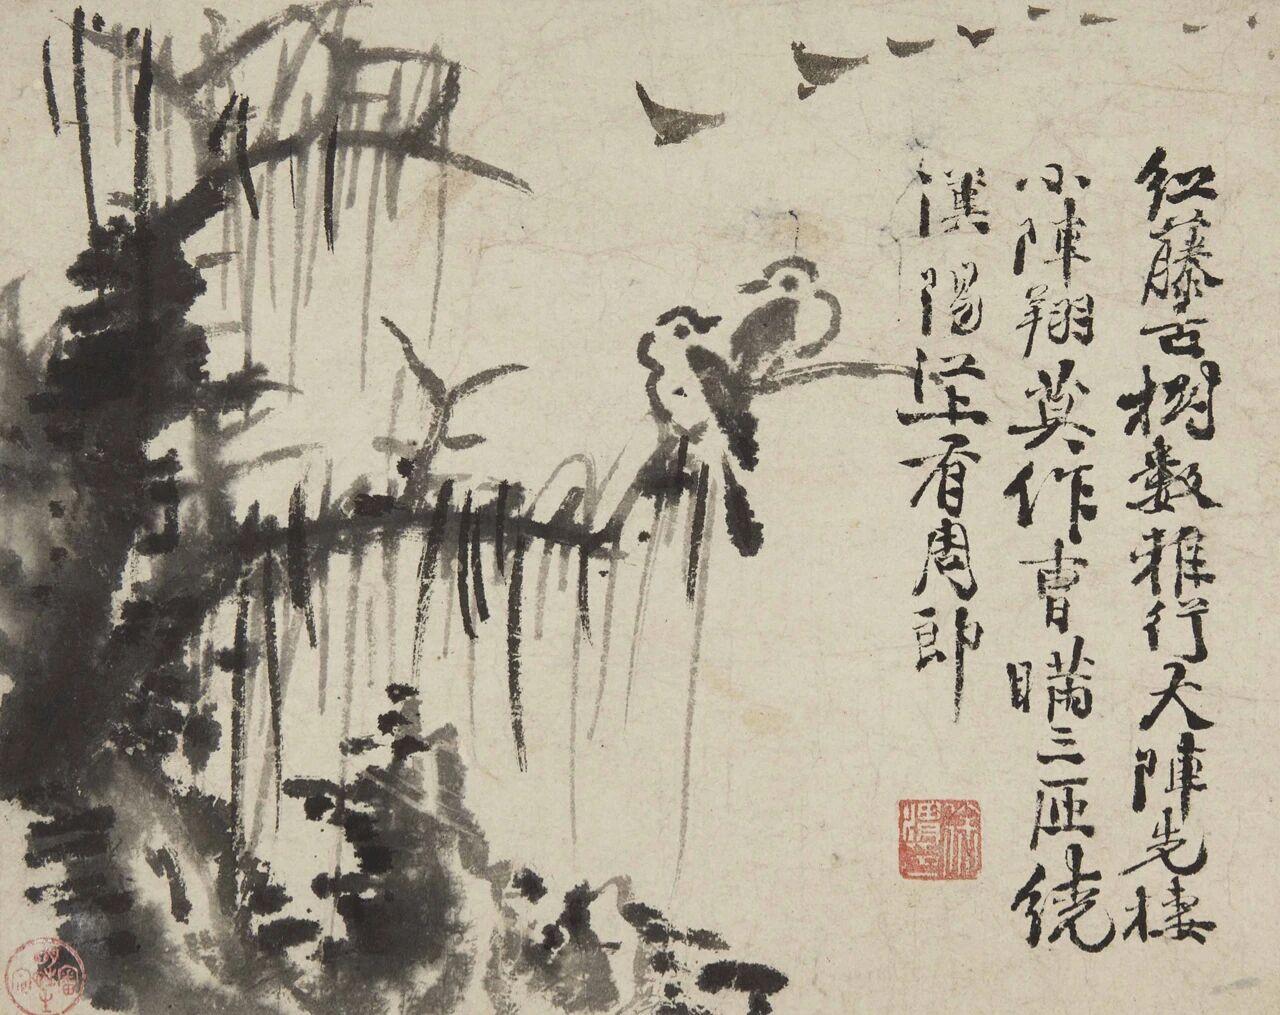 紅藤古樹數雅行大陣先棲
小陣翔莫作曹瞞三匝繞
漢陽江上看周郎